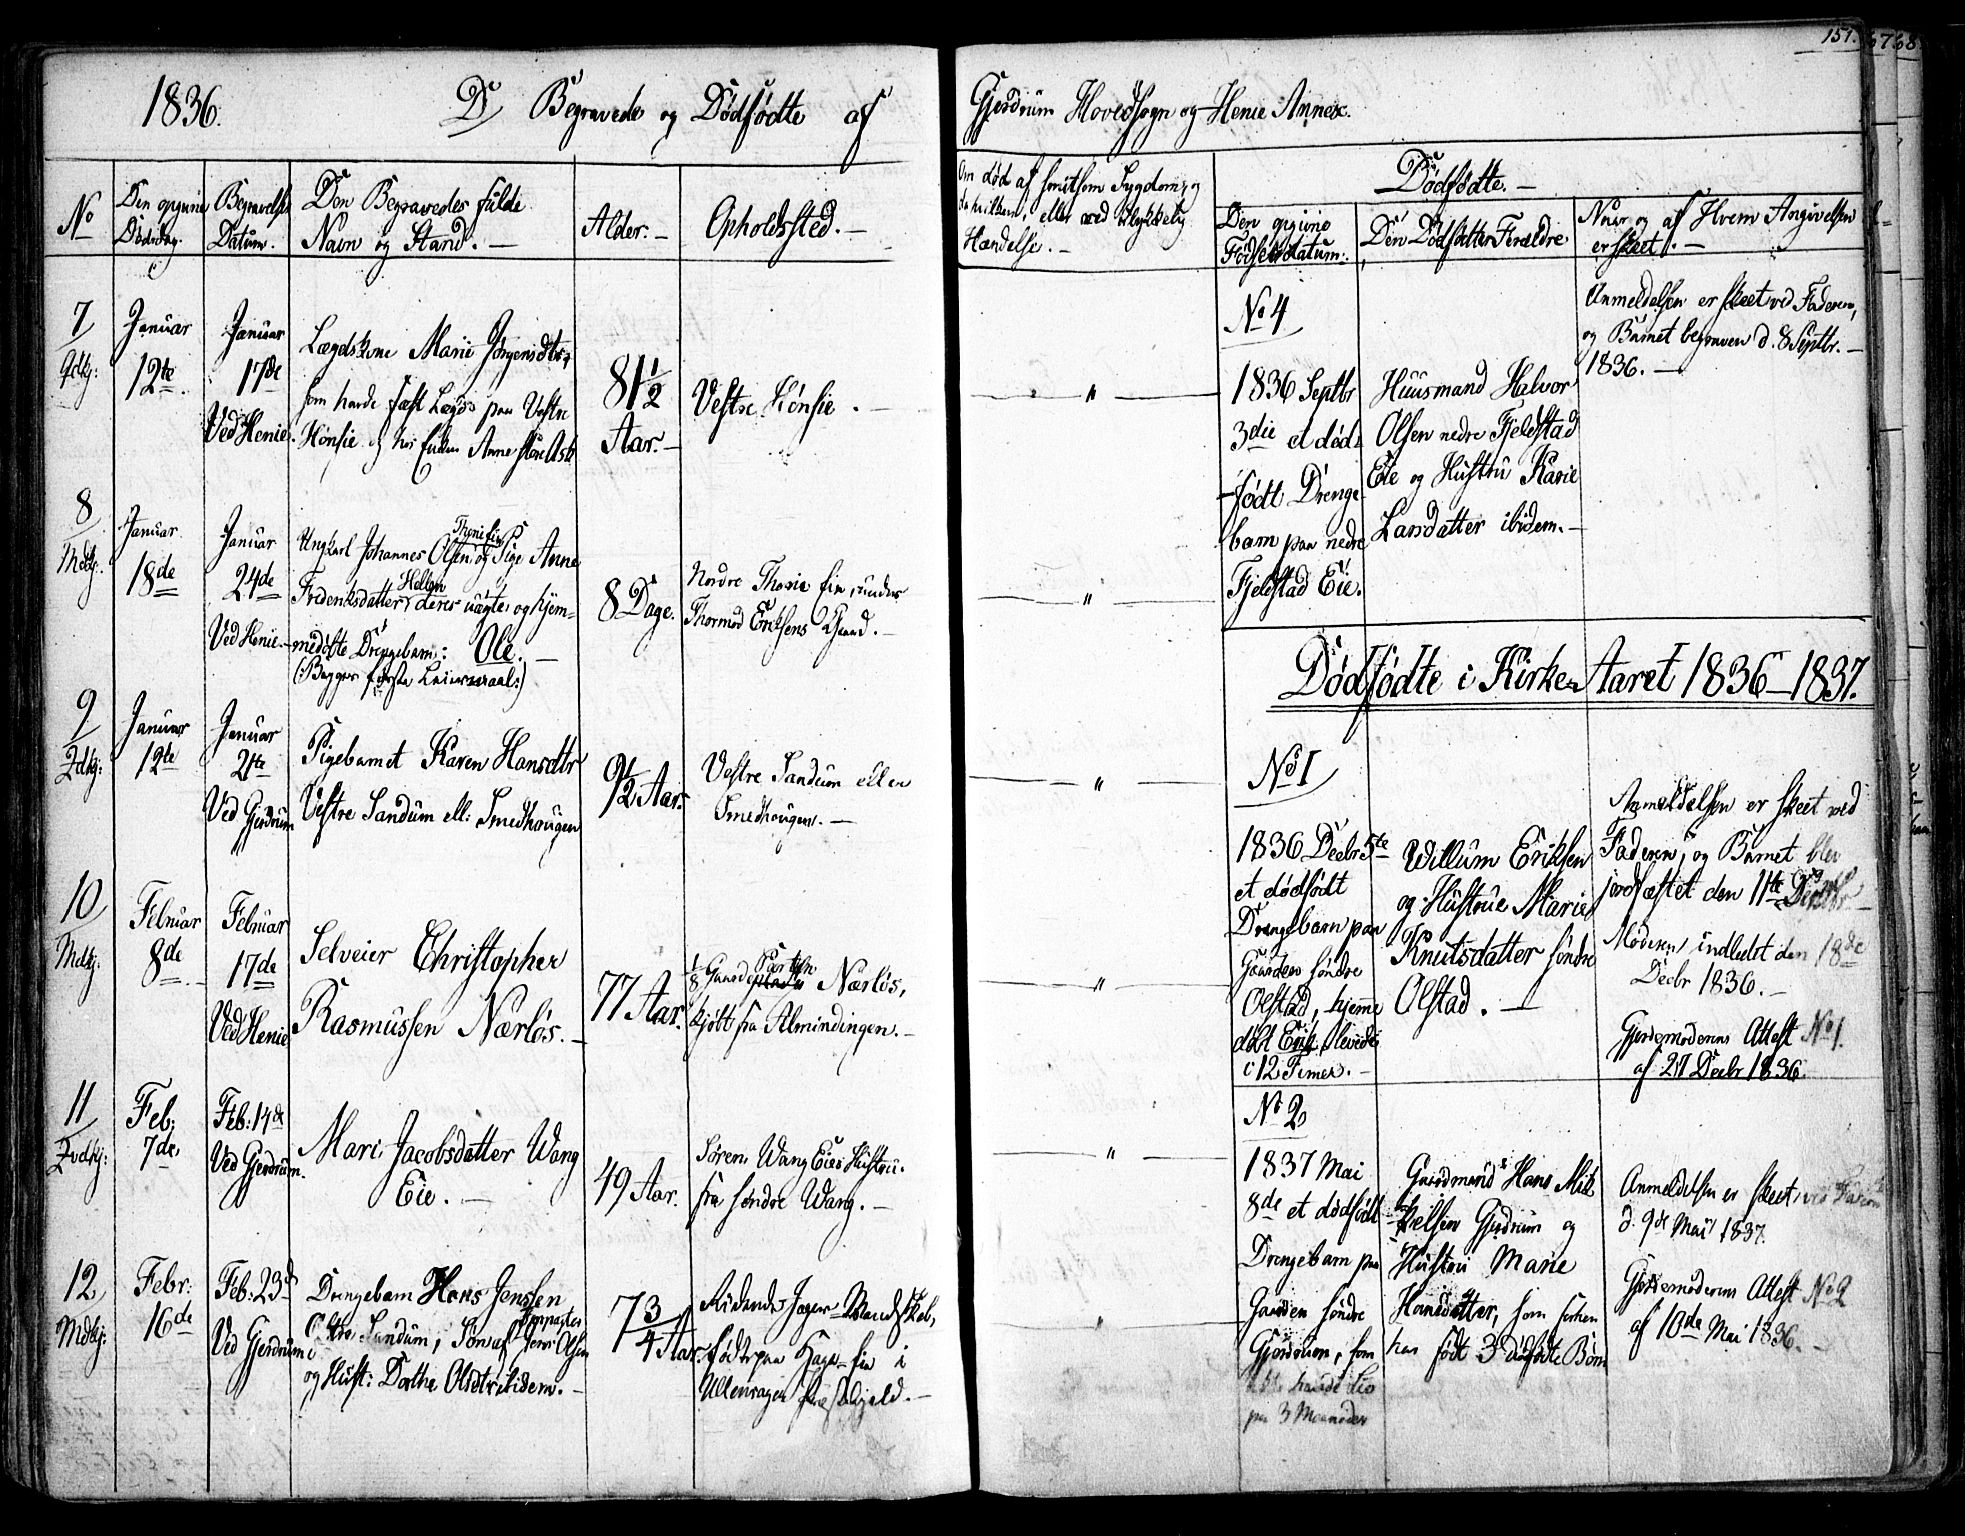 1836.
D Begravede og Dødfødte af
No
Den opgivne
Dødsdag.
Begravelses
Datum.
Den Begravedes fulde
Navn og Stand. —
Alder. —
Opholdssted. —
7
Januar
12te
Januar
17de
Ved Henie.
Lægdskone Marie Jørgensdtr,
som havde fast Lægd paa Vestre
Hønsie
81 1/2
Aar. —
Vestre Hønsie. —
8
Januar
18de
Januar
24de
Ved Henie. —
Ungkarl Johannes Olsen og Pige Anne
Fredriksdatter deres uægte og hjem-
medøbte Drengebarn: Ole. —
(: Begges første Leiermaal :)
8 Dage.
Nordre eie, under
Thormod Eriksens Gaard. —
9
Januar
12te
Januar
24te
Ved Gjerdrum
Pigebarnet Karen Hansdtr
Vestre Sandum ell: Smedhougen
9 1/2 Aar.
Vestre Sandum eller
Smedhougen. —
10
Februar
8de
Februar
17de
Ved Henie
Selveier Christopher
Rasmussen Nærløs. —
77 Aar.
1/8 Gaardeparten Nærløs,
kjøbt fra Almindingen. —
11
Feb:
7de
Feb: 14de
Ved Gjerdrum.
Mari Jacobsdatter Wang
Eie. —
49 Aar.
Søren Wang Eies Hustru.
fra søndre Wang. —
12
Febr:
16de
Feb: 23d
Ved Gjerdrum
Drengebarn Hans Jenssen
Sandum, Søn af Jens Olsen
og Hust: Dorthe Olsdtr ibidem. —
7 3/4 Aar.
Ridende Jæger Mandskab,
født paa Haga eie i
Ullensager Præstegjeld. —
151.
Gjerdrum Hovedsogn og Henie Annex.
Om død af smitsom Sygdom, og
da hvilken, eller ved ulykkelig
Hændelse. —
Dødfødte. —
Den opgivne
Fødselsdatum.
Den Dødfødtes Forældre
Naar og af Hvem Angivelsen
er skeet. —
No 4
1836 Septbr
3die et død-
født Drenge
barn paa nedre
Fjeldstad Eie.
Huusmand Halvor
Olsen nedre Fjeldstad
Eie og Hustru Karie
Larsdatter ibidem. —
Anmeldelsen er skeet ved Faderen,
og Barnet begraven d. 8 Septbr. —
1836. —
Dødfødte i Kirke-Aaret 1836–1837.
No 1
1836 Decbr 5te
et dødfødt
Drengebarn paa
Gaarden søndre
Olstad, hjemme
døbt Erik, levede
i 12 Timer. —
Willum Eriksen
og Hustrue Marie
Knutsdatter søndre
Olstad. —
Anmeldelsen er skeet ved
Faderen, og Barnet blev
jordfæstet den 11te Decbr —
Moderen indledt den 18de
Decbr 1836. —
Gjordemoderens Attest No 1.
af 27 Decbr 1836.
No 2
1837 Mai
8de et dødfødt
Drengebarn paa
Gaarden søndre
Gjerdrum, som
havde Liv
paa 3 Maaneder
Gaardmand Hans Mik
kelsen Gjerdrum og
Hustru Marie
Hansdatter, som
har født 3 dødfødte Børn
Anmeldelsen er skeet ved Faderen
d. 9de Mai 1837.
Gjordemoderens Attest No 2
af 10de Mai 1836. —